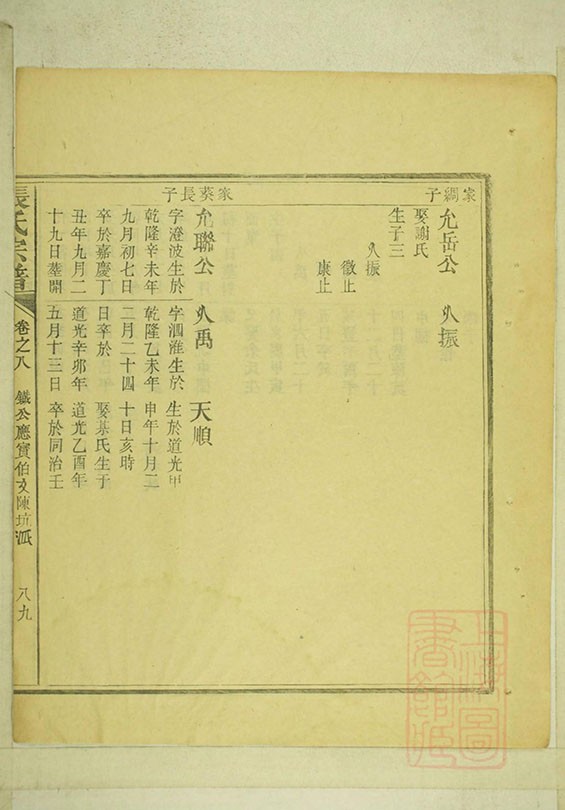 家綢子
允岳公
久振
娶謝氏
生子三
久振
徽止
康止
家葵長子
允聯公
字澄波生於
乾隆辛未年
九月初七日
卒於嘉慶丁
丑年九月二
十九日塟開
久禹
字泗淮生於
乾隆乙未年
二月二十四
日卒於
道光辛卯年
五月十三日
天順
生於道光甲
申年十月二
十日亥時
娶氏生于
道光乙酉年
卒於同治壬
張氏宗譜
卷之八
鐵公應寶伯文陳坑派
八九
上海圖書館藏